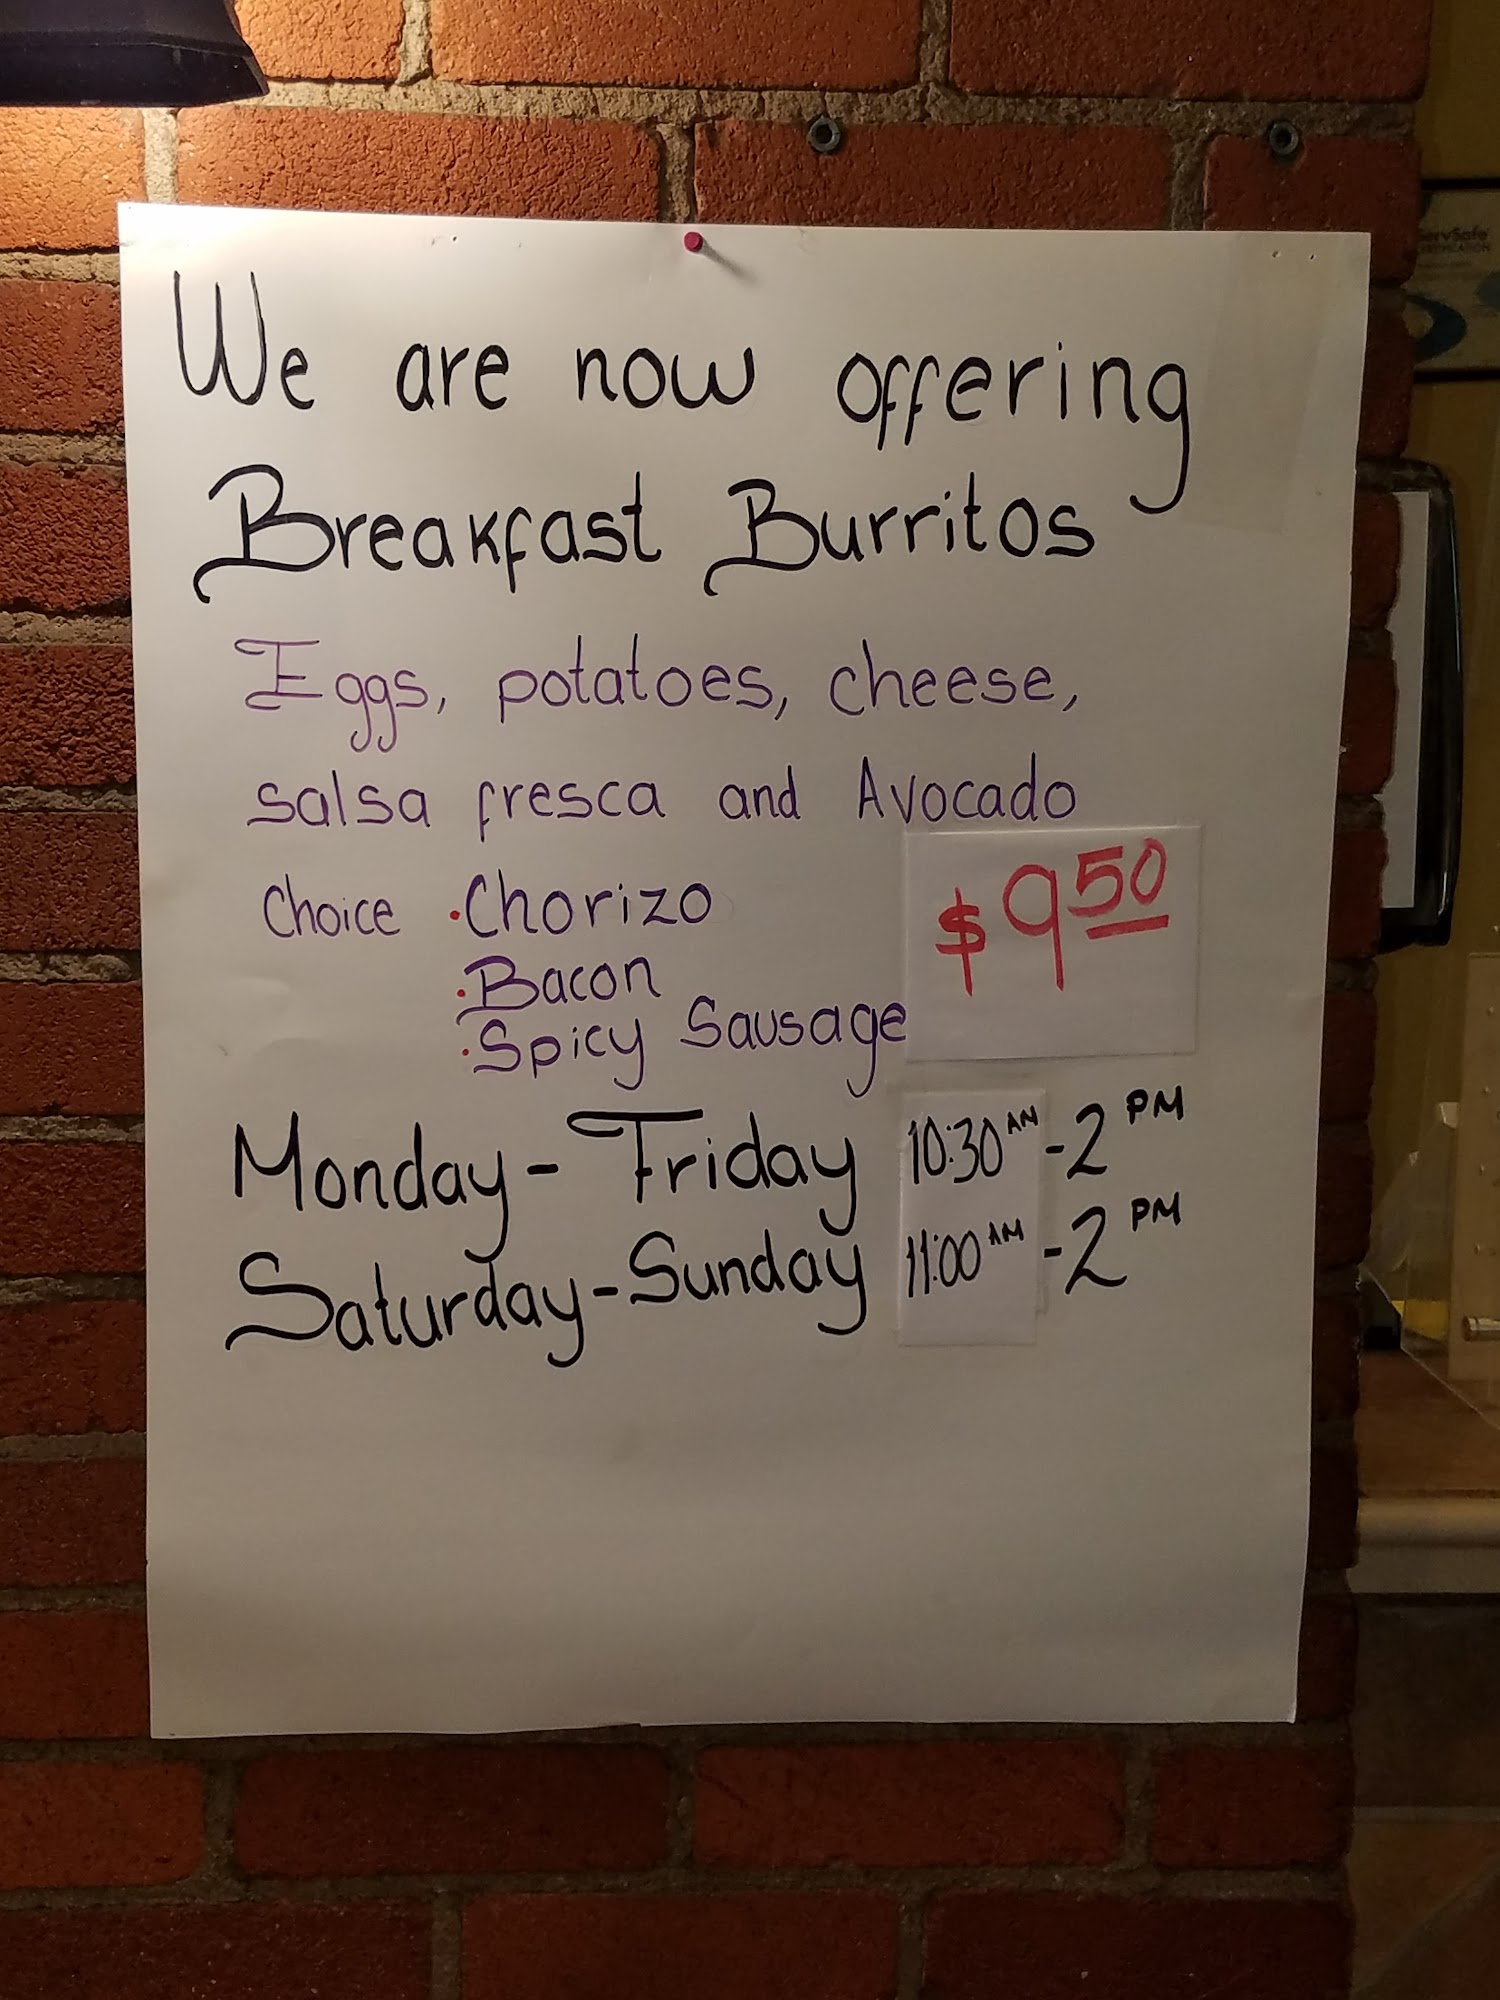 We are now offering
Breakfast Burritos
Eggs, potatoes, cheese,
salsa fresca and Avocado
Choice • Chorizo
• Bacon
• Spicy Sausage
$9 50
Monday - Friday 10:30 AM - 2 PM
Saturday - Sunday 11:00 AM - 2 PM
ServSafe